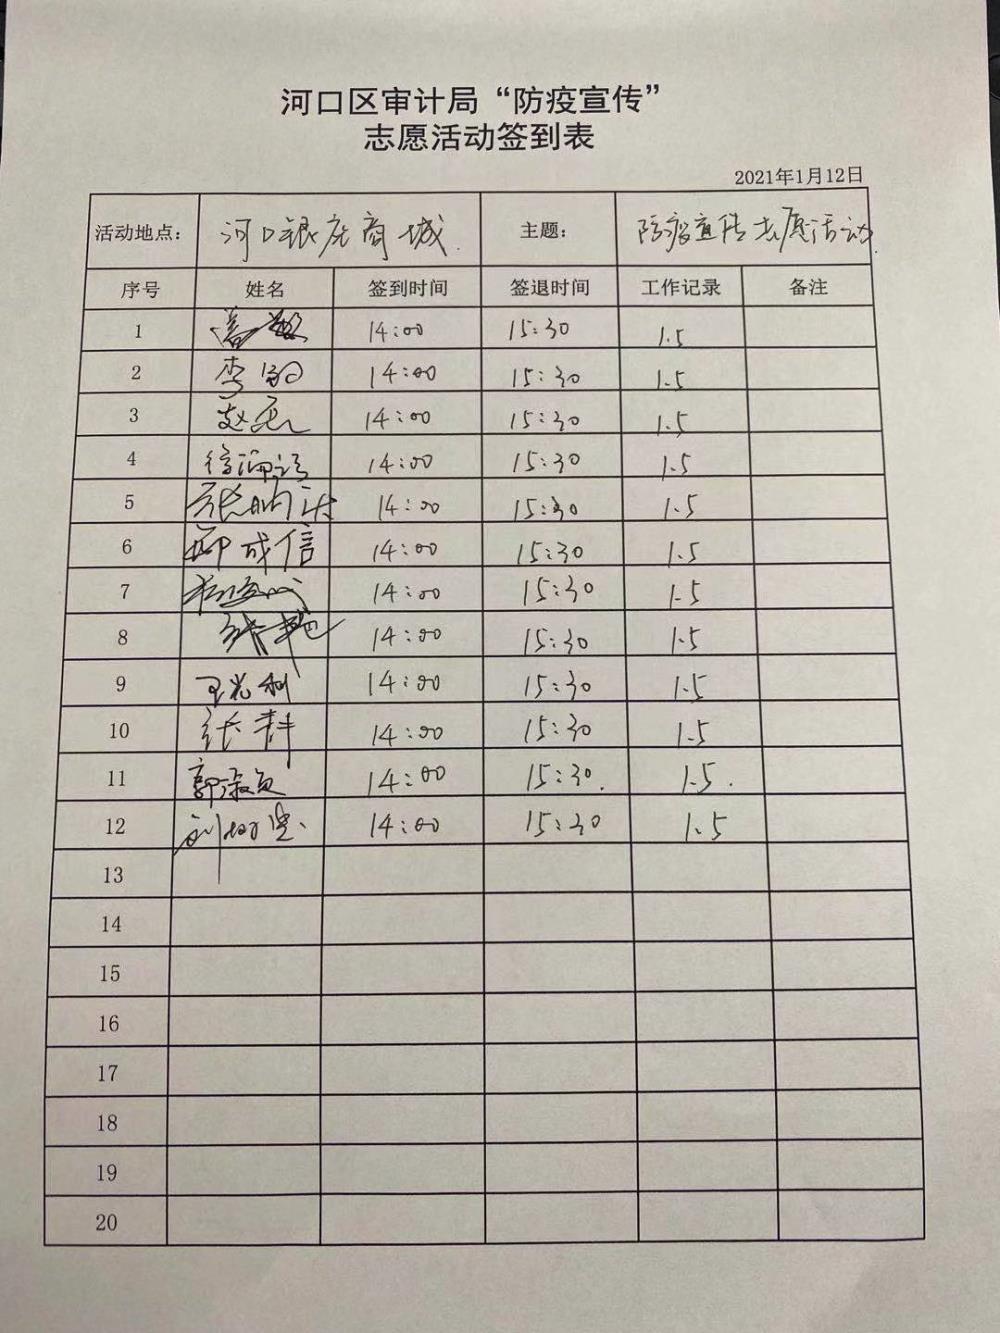 河口区审计局“防疫宣传”
志愿活动签到表
2021年1月12日
活动地点： 河口银座商城. 主题： 防疫宣传志愿活动.
序号 姓名 签到时间 签退时间 工作记录 备注
1 14:00 15:30 1.5
2 李 14:00 15:30 1.5
3 赵 14:00 15:30 1.5
4 徐 14:00 15:30 1.5
5 张 14:00 15:30 1.5
6 成信 14:00 15:30 1.5
7 14:00 15:30 1.5
8 14:00 15:30 1.5
9 王光利 14:00 15:30 1.5
10 张 14:00 15:30 1.5
11 郭淑贞 14:00 15:30. 1.5.
12 刘 14:00 15:30 1.5
13
14
15
16
17
18
19
20